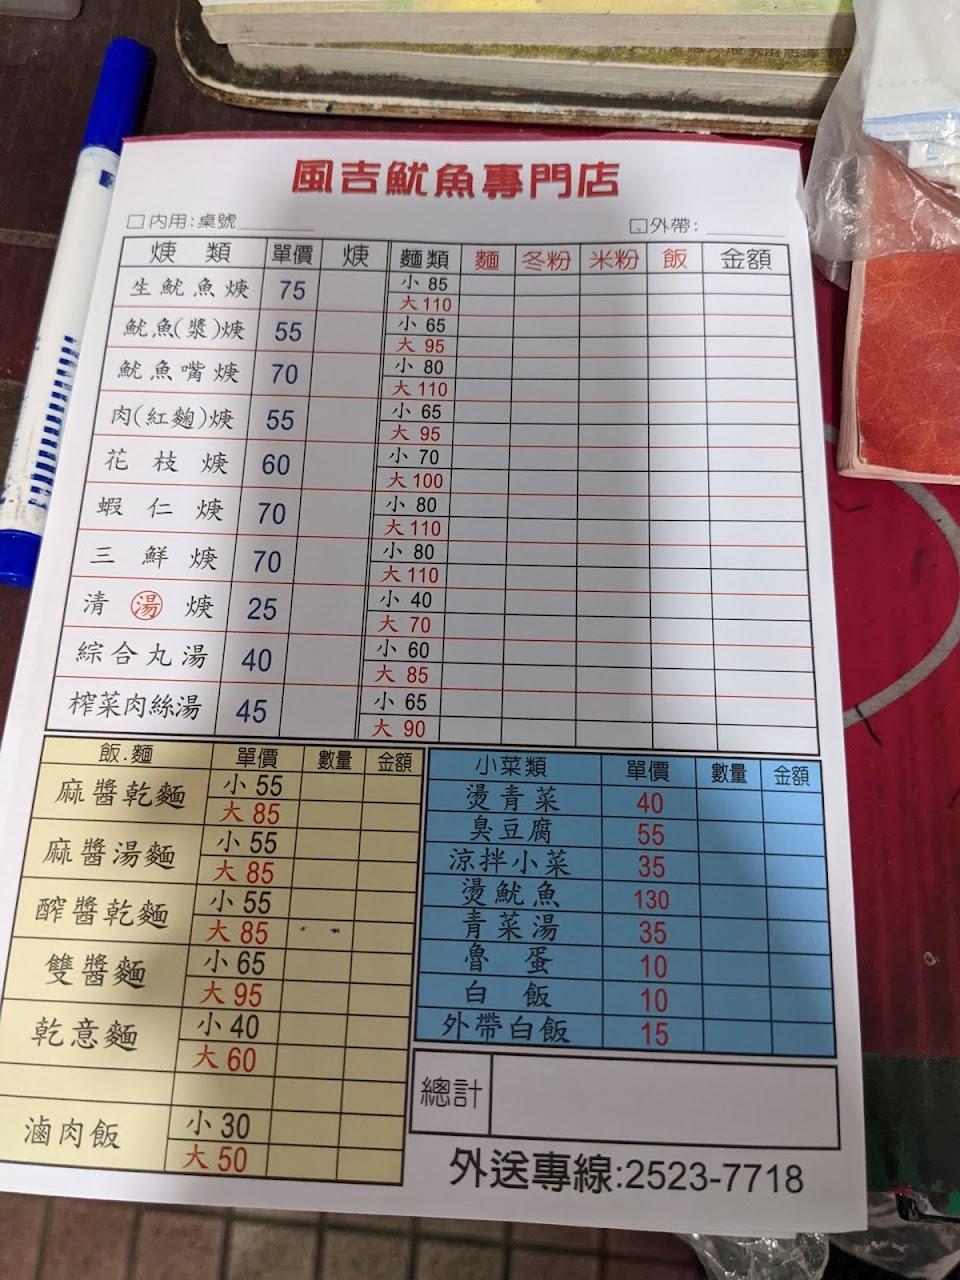 風吉魷魚專門店
□內用:桌號
□外帶:
焿類 單價 焿 麵類 麵 冬粉 米粉 飯 金額
生魷魚焿 75 小 85
大 110
魷魚(漿)焿 55 小 65
大 95
魷魚嘴焿 70 小 80
大 110
肉(紅麴)焿 55 小 65
大 95
花枝焿 60 小 70
大 100
蝦仁焿 70 小 80
大 110
三鮮焿 70 小 80
大 110
清湯焿 25 小 40
大 70
綜合丸湯 40 小 60
大 85
榨菜肉絲湯 45 小 65
大 90
飯.麵 單價 數量 金額
麻醬乾麵 小 55
大 85
麻醬湯麵 小 55
大 85
醡醬乾麵 小 55
大 85
雙醬麵 小 65
大 95
乾意麵 小 40
大 60
滷肉飯 小 30
大 50
小菜類 單價 數量 金額
燙青菜 40
臭豆腐 55
涼拌小菜 35
燙魷魚 130
青菜湯 35
魯蛋 10
白飯 10
外帶白飯 15
總計
外送專線:2523-7718